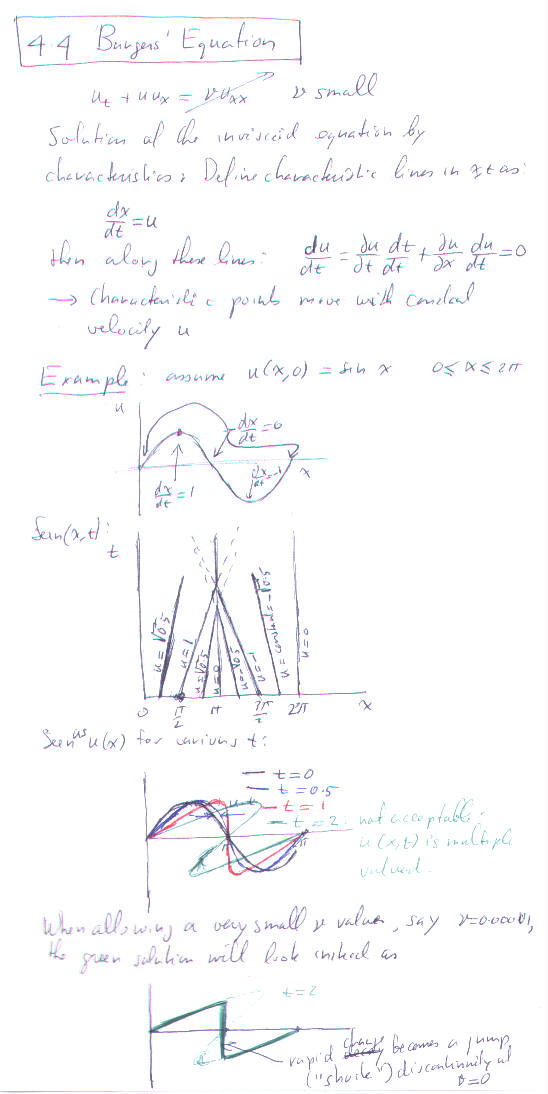 4.4 Burgers' Equation
u_t + uu_x = νu_xx ν small
Solution of the inviscid equation by
characteristics: Define characteristic lines in x,t as:
dx/dt = u
then along these lines: du/dt = ∂u/∂t dt/dt + ∂u/∂x du/dt = 0
→ Characteristic points move with constant
velocity u
Example: assume u(x,0) = sin x 0 ≤ x ≤ 2π
u
dx/dt = 0
x
dx/dt = 1
dx/dt = -1
Seen (x,t):
t
u = √0.5
u = 1
u = √0.5
u = 0
u = -√0.5
u = -1
u = constant = -√0.5
u = 0
0 π/2 π 3π/2 2π x
Seen as u(x) for various t:
t = 0
t = 0.5
t = 1
t = 2: not acceptable:
u(x,t) is multiple
valued.
When allowing a very small ν value, say
the green solution will look instead as
t = 2
rapid change becomes a jump
("shock") discontinuity at
ν = 0